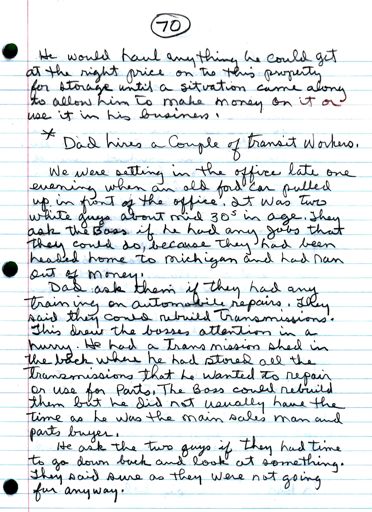 70
He would haul anything he could get
at the right price on to this property
for storage until a situation came along
to allow him to make money on it or
use it in his business.
* Dad hires a Couple of transit Workers.
We were setting in the office late one
evening when an old ford car pulled
up in front of the office. It was two
white guys about mid 30s in age. They
ask the Boss if he had any jobs that
they could do, because they had been
headed home to michigan and had ran
out of money.
Dad ask them if they had any
training on automobile repairs. They
said they could rebuild Transmissions.
This drew the bosses attention in a
hurry. He had a Transmission shed in
the back where he had stored all the
transmissions that he wanted to repair
or use for Parts. The Boss could rebuild
them but he did not usually have the
time as he was the main sales man and
parts buyer.
He ask the two guys if they had time
to go down back and look at something.
They said sure as they were not going
far anyway.